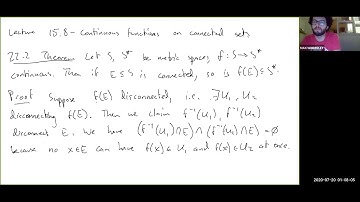 Lecture 15.8 - Continuous functions on connected sets
22.2 Theorem Let S, S* be metric spaces, f: S → S*
continuous. Then if E ⊆ S is connected, so is f(E) ⊆ S*.
Proof Suppose f(E) disconnected, i.e. ∃ U₁, U₂
disconnecting f(E). Then we claim f⁻¹(U₁), f⁻¹(U₂)
disconnect E. We have (f⁻¹(U₁) ∩ E) ∩ (f⁻¹(U₂) ∩ E) = ∅
because no x ∈ E can have f(x) ∈ U₁ and f(x) ∈ U₂ at once.
2020-07-20 01:08:05